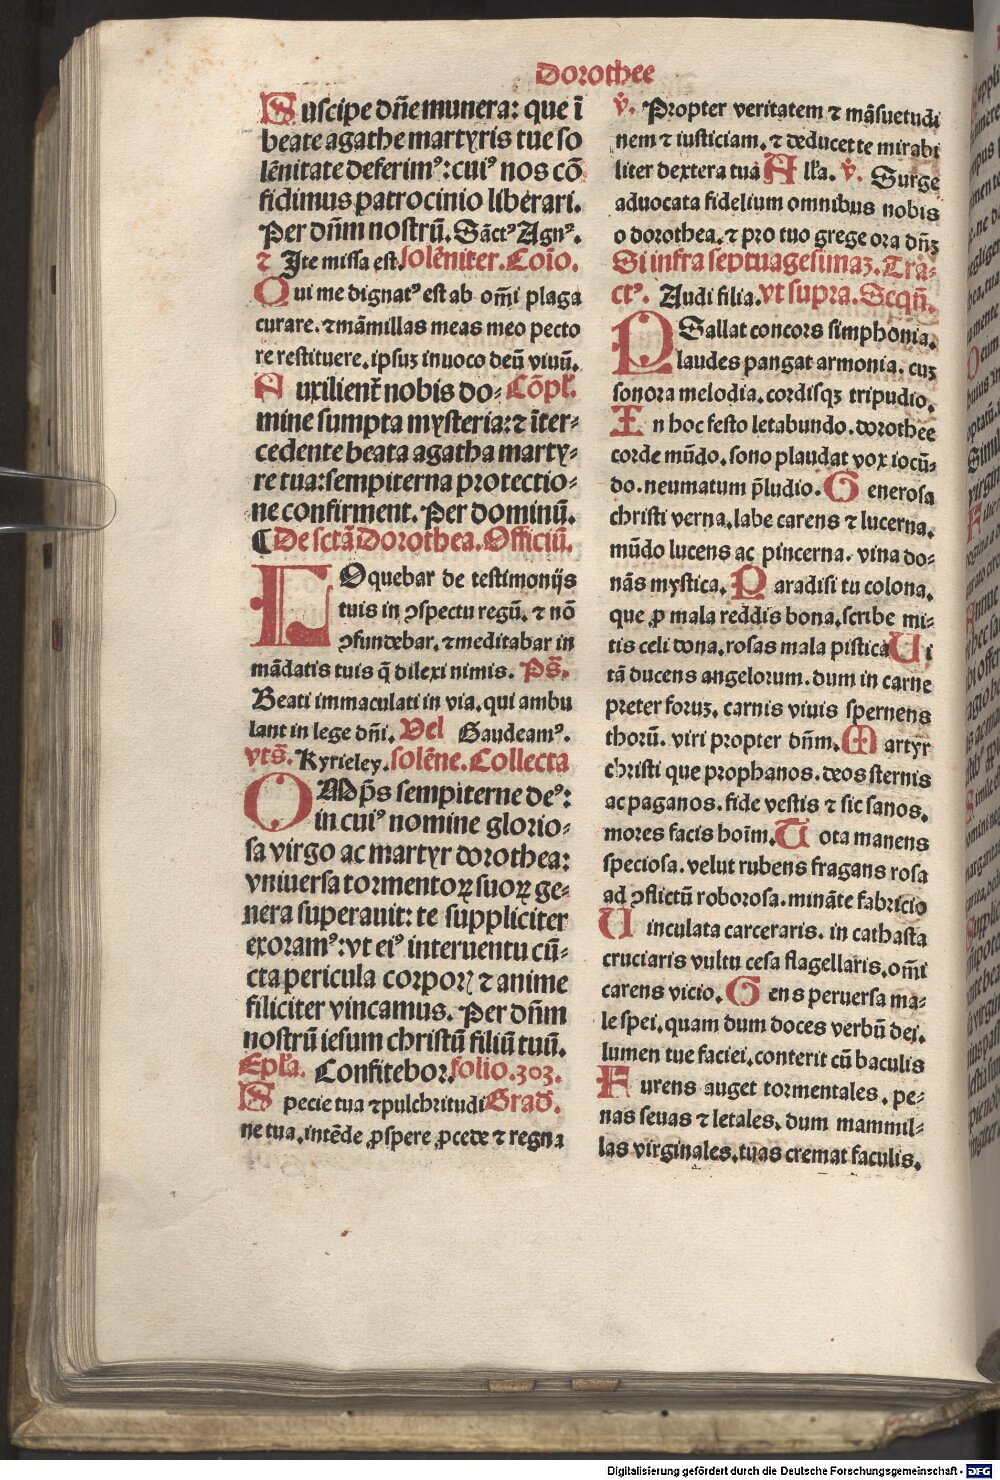 Dorothee
Suscipe dn̄e munera: que ī
beate agathe martyris tue so
lēnitate deferimꝰ: cuiꝰ nos cō
fidimus patrocinio liberari.
Per dn̄m nostrū. Sāctꝰ Agnꝰ.
⁊ Ite missa est. solēniter. Coīo.
Qui me dignatꝰ est ab om̄i plaga
curare. ⁊ māmillas meas meo pecto
re restituere. ipsuꝫ inuoco deū viuū.
Auxilient᷑ nobis do- Cōpl̄.
mine sumpta mysteria: ⁊ īter-
cedente beata agatha marty-
re tua: sempiterna protectio-
ne confirment. Per dominū.
⸿ De sctā Dorothea. Officiū.
LOquebar de testimonijs
tuis in ꝯspectu regū. ⁊ nō
ꝯfundebar. ⁊ meditabar in
mādatis tuis q̄ dilexi nimis. Ps̄.
Beati immaculati in via. qui ambu
lant in lege dn̄i. Vel Gaudeamꝰ.
vts̄. Kyrieley. solēne. Collecta
OMp̄s sempiterne deꝰ:
in cuiꝰ nomine glorio-
sa virgo ac martyr dorothea:
vniuersa tormentoꝝ suoꝝ ge-
nera superauit: te suppliciter
exoramꝰ: vt eiꝰ interuentu cū-
cta pericula corpoꝝ ⁊ anime
filiciter vincamus. Per dn̄m
nostrū iesum christū filiū tuū.
Epl̄a. Confitebor. folio. 303.
Specie tua ⁊ pulchritudi Grad̄.
ne tua. intēde ꝓspere ꝓcede ⁊ regna
v̄. Propter veritatem ⁊ māsuetudi
nem ⁊ iusticiam. ⁊ deducet te mirabi
liter dextera tua All̄a. v̄. Surge
aduocata fidelium omnibus nobis
o dorothea. ⁊ pro tuo grege ora dn̄ꝫ
Si infra septuagesimaꝫ. Tra-
ctꝰ. Audi filia. vt supra. Seqn̄.
PSallat concors simphonia.
laudes pangat armonia. cuꝫ
sonora melodia. cordisqꝫ tripudio.
In hoc festo letabundo. dorothee
corde mūdo. sono plaudat vox iocū-
do. neumatum p̄ludio. Generosa
christi verna. labe carens ⁊ lucerna.
mūdo lucens ac pincerna. vina do-
nās mystica. Paradisi tu colona.
que ꝓ mala reddis bona. scribe mi-
tis celi dona. rosas mala pistica Ui
tā ducens angelorum. dum in carne
preter foruꝫ. carnis viuis spernens
thorū. viri propter dn̄m. Martyr
christi que prophanos. deos sternis
ac paganos. fide vestis ⁊ sic sanos.
mores facis hoīm. Uota manens
speciosa. velut rubens fragans rosa
ad ꝯflictū roborosa. mināte fabricio
Uinculata carceraris. in cathasta
cruciaris vultu cesa flagellaris. om̄i
carens vicio. Gens peruersa ma-
le spei. quam dum doces verbū dei.
lumen tue faciei. conterit cū baculis
Furens auget tormentales. pe-
nas seuas ⁊ letales. dum mammil-
las virginales. tuas cremat faculis.
Digitalisierung gefördert durch die Deutsche Forschungsgemeinschaft - DFG